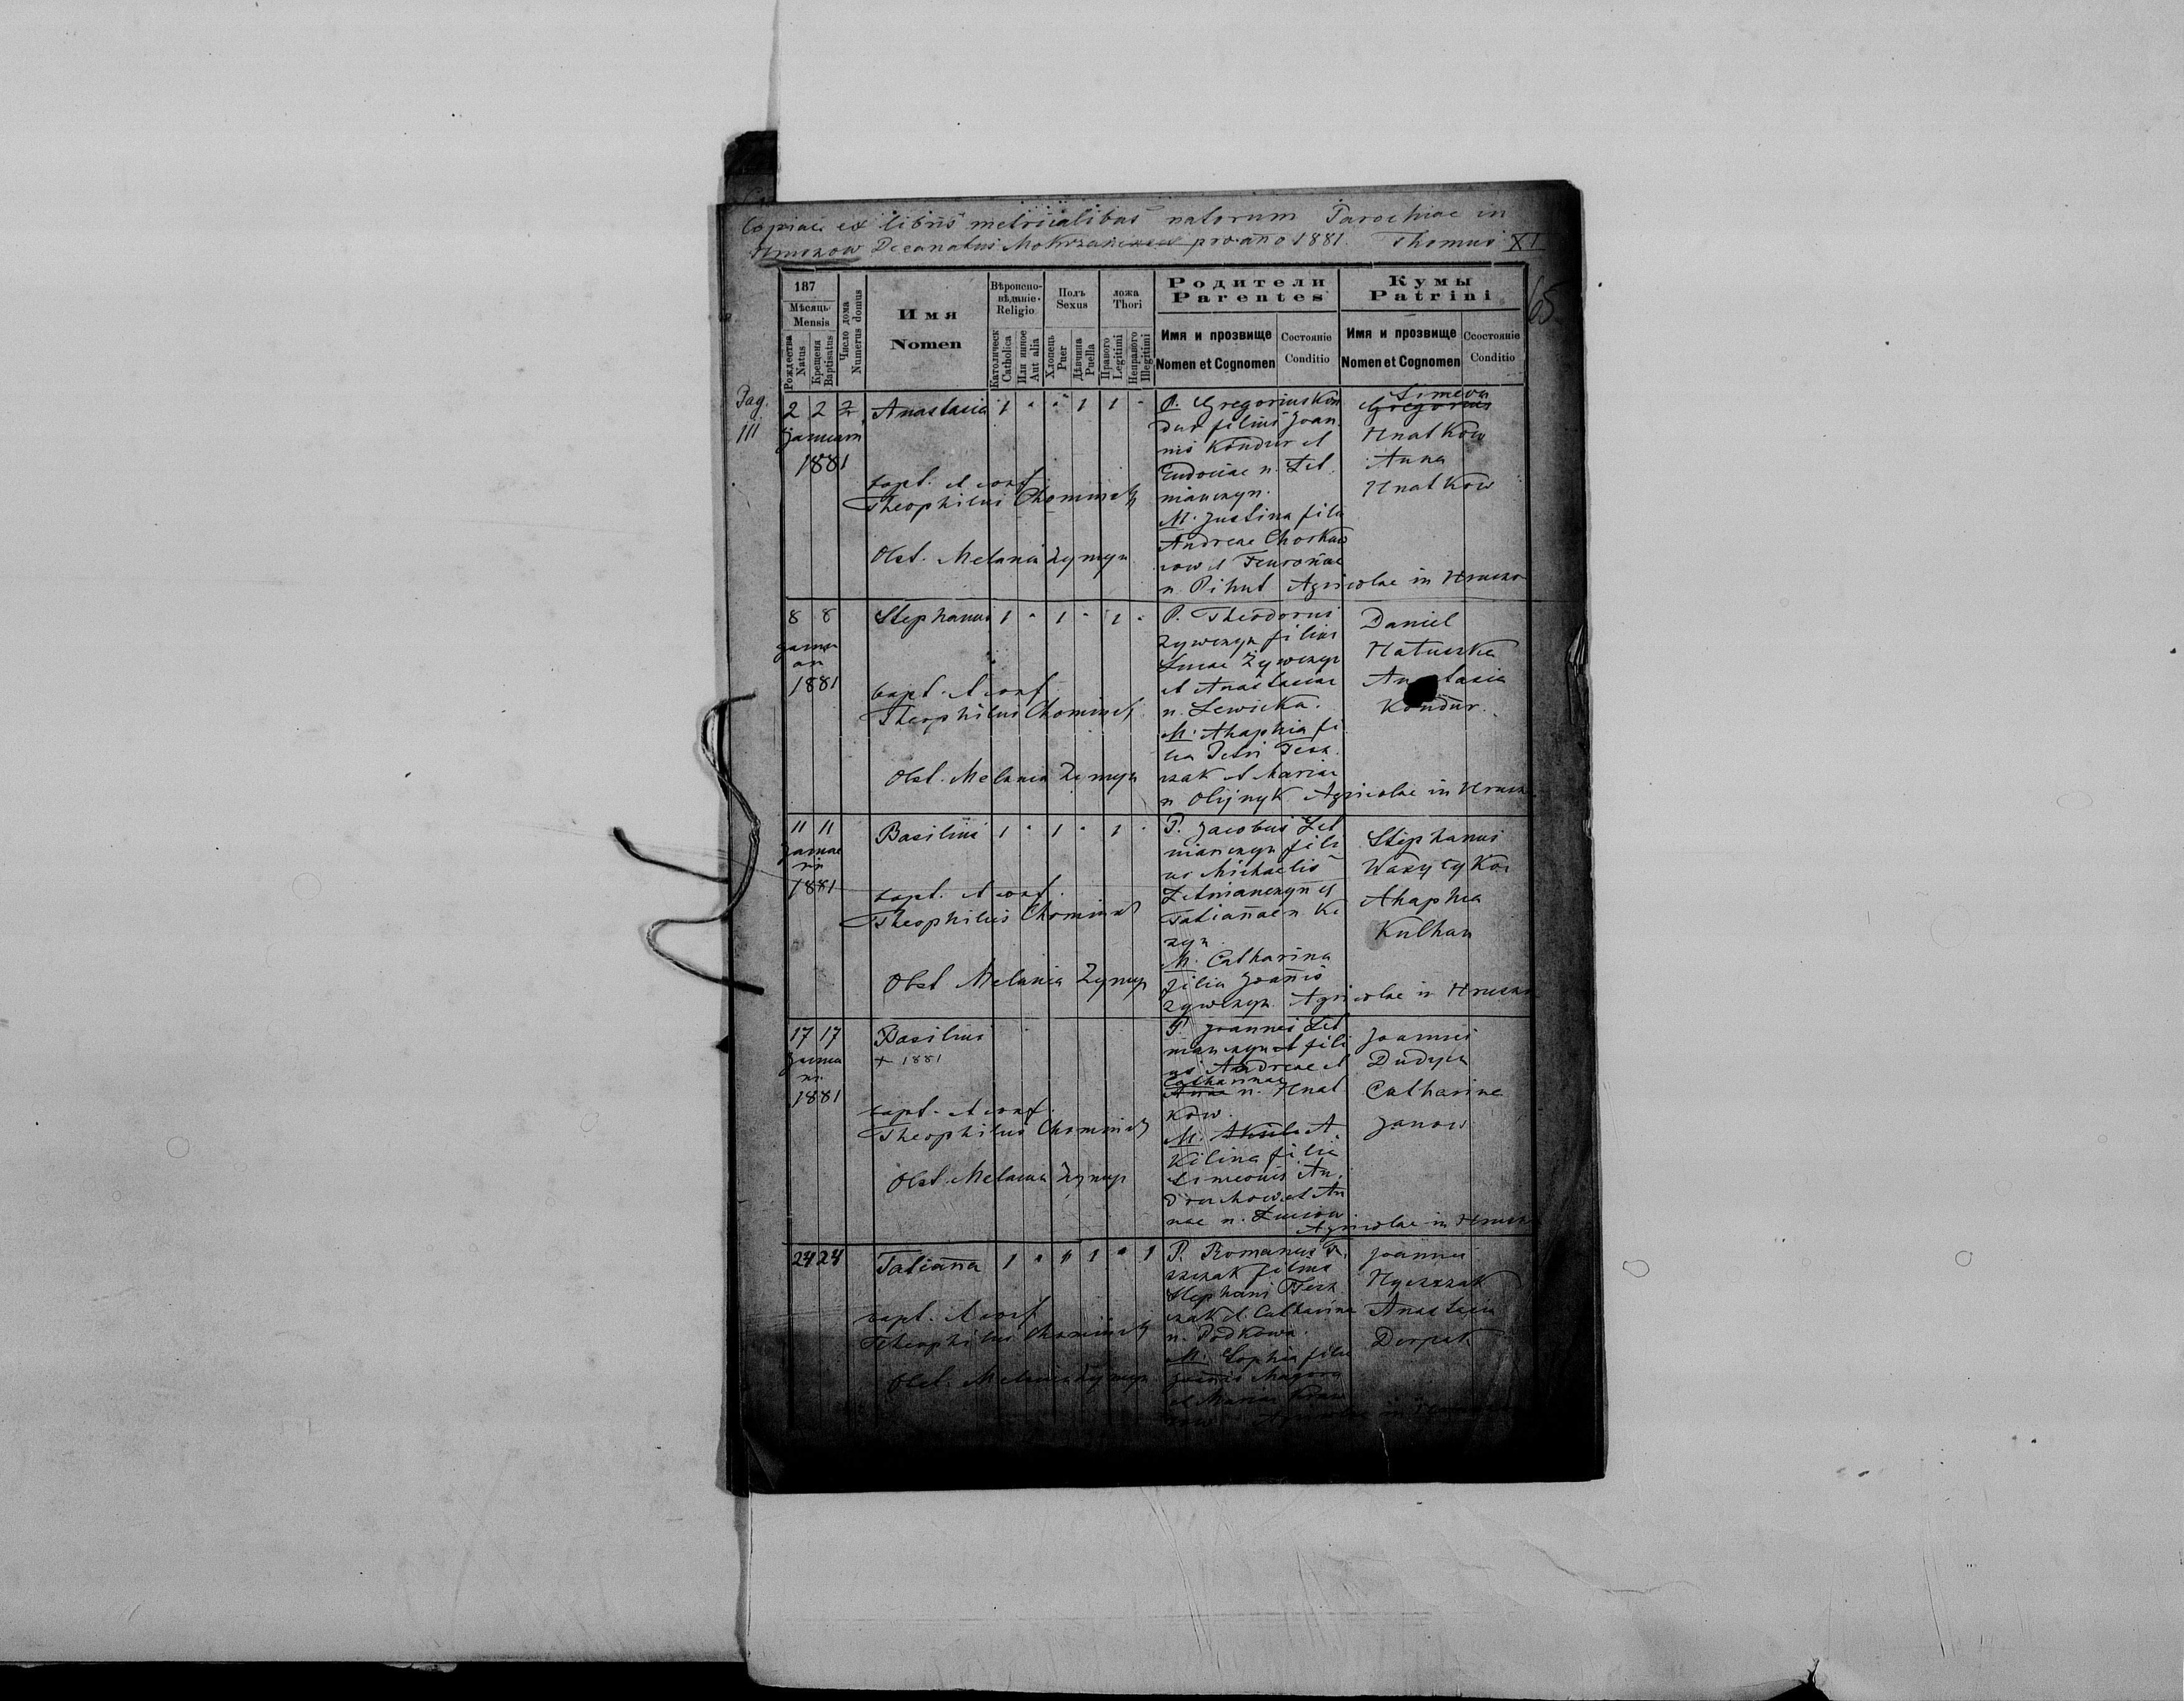 Copiae ex libris metricalibus natorum Parochiae in
Hruszow Decanatus pro ano 1881. Thomus XI
65
187
Мѣсяць
Mensis
Рождества
Natus
Крещеня
Baptisatus
Число дома
Numerus domus
Имя
Nomen
Вѣроиспо-
вѣданіе
Religio
Католическ
Catholica
Или иное
Aut alia
Полъ
Sexus
Хлопець
Puer
Дѣвчина
Puella
ложа
Thori
Правого
Legitimi
Неправого
Illegitimi
Родители
Parentes
Имя и прозвище
Nomen et Cognomen
Состояніе
Conditio
Кумы
Patrini
Имя и прозвище
Nomen et Cognomen
Ссостояніе
Conditio
Pag.
III
2 2 2 Anastasia 1 " " 1 1 "
Januarii
1881
bapt. et conf.
Theophilus Chominski
Obst. Melania Zymyn
P. Gregorius Kon
dur filius Joan
nis Kondur et
Eudociae n. Let
manczyn.
M. Justina filia
Andreae
et Feuronae
n. Pihut Agricolae in Hruszo
Simeon
Gregorius
Hnatkow
Anna
Hnatkow
8 8 Stephanus 1 " 1 " 1 "
Janu
ari
1881
bapt. et conf.
Theophilus Chominski
Obst. Melania Zymyn
P. Theodorus
Zywczyn filius
Lucae Zywczyn
et Anastasiae
n. Lewicka.
M. Ahaphia fi
lia Petri Tesz
czak et Mariae
n Olijnyk Agricolae in Hrusz
Daniel
Hatuszka
Anastasia
Kondur.
11 11 Basilius 1 " 1 " 1 "
Januae
rii
1881
bapt. et conf.
Theophilus Chominski
Obst Melania Zymyn
P. Jacobus Let
manczyn fili
us Michaelis
Letmanczyn et
Tatianae n. Ki
zyn.
M. Catharina
filia Joannis
Zywczyn. Agricolae in Hruszo
Stephanus
Wasylykow
Ahaphia
Kulhan
17 17 Basilius
Janua
rii
1881
+ 1881
bapt. et conf.
Theophilus Chominski
Obst. Melania Zymyn
P. Joannes Let
manczyn et fili
us Andreae et
Catharinae
Anna n. Hnat
kow.
M. A
Kilina filia
Simeonis An
druchow et An
nae n. Lucow
Agricolae in Hrusz
Joannes
Dudycz
Catharina
Janow
24 24 Tatianna 1 " " 1 " 1
bapt. et conf.
Theophilus Chominski
Obst. Melania Zymyn
P. Romanus Te
szczak filius
Stephani Tesz
czak et Catharina
n. Podkowa.
M. Sophia filia
Joannis
et Mariae
Agricolae in
Joannes
Hyszczak
Anastasia
Derpak